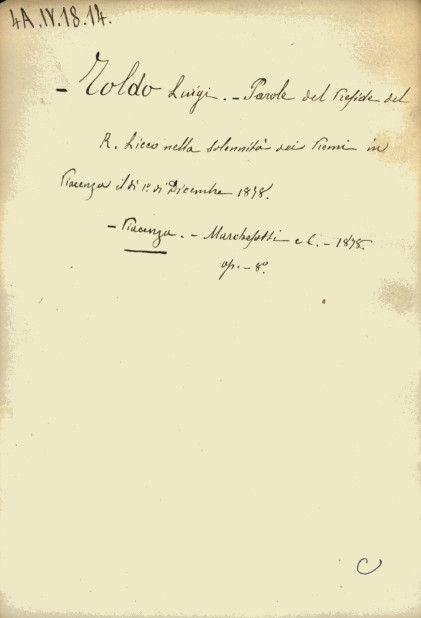 4A.IV.18.14.
- Toldo Luigi. - Parole del Preside del
R. Liceo nella solennità dei Premi in
Piacenza il dì 1º di Dicembre 1878.
- Piacenza. - Marchesotti e C. - 1878.
op. - 8º
C